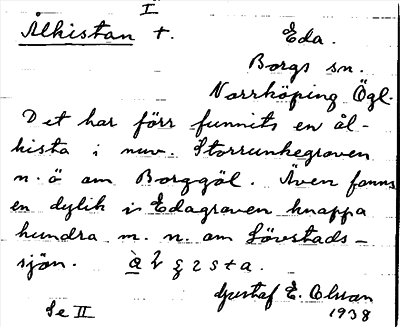 I
Ålkistan t.
Eda.
Borgs sn.
Norrköping Ögl.
Det har förr funnits en ål-
kista i nuv. Storrunkegraven
n. ö am Borggöl. Även fanns
en dylik i Edagraven knappa
hundra m. n. om Lövstads-
sjön.
Se II
Gustaf E. Olsson
1938